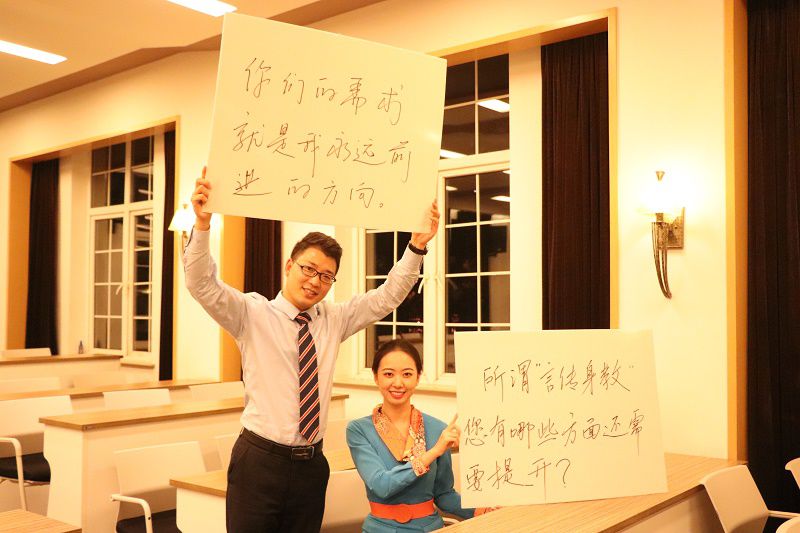 你们的需求
就是我永远前
进的方向。
所谓“言传身教”
您有哪些方面还需
要提升？